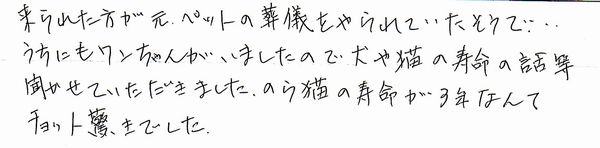 来られた方が元.ペットの葬儀をやられていたそうで…
うちにもワンちゃんがいましたので犬や猫の寿命の話等
聞かせていただきました.のら猫の寿命が3年なんて
チョット驚きでした.